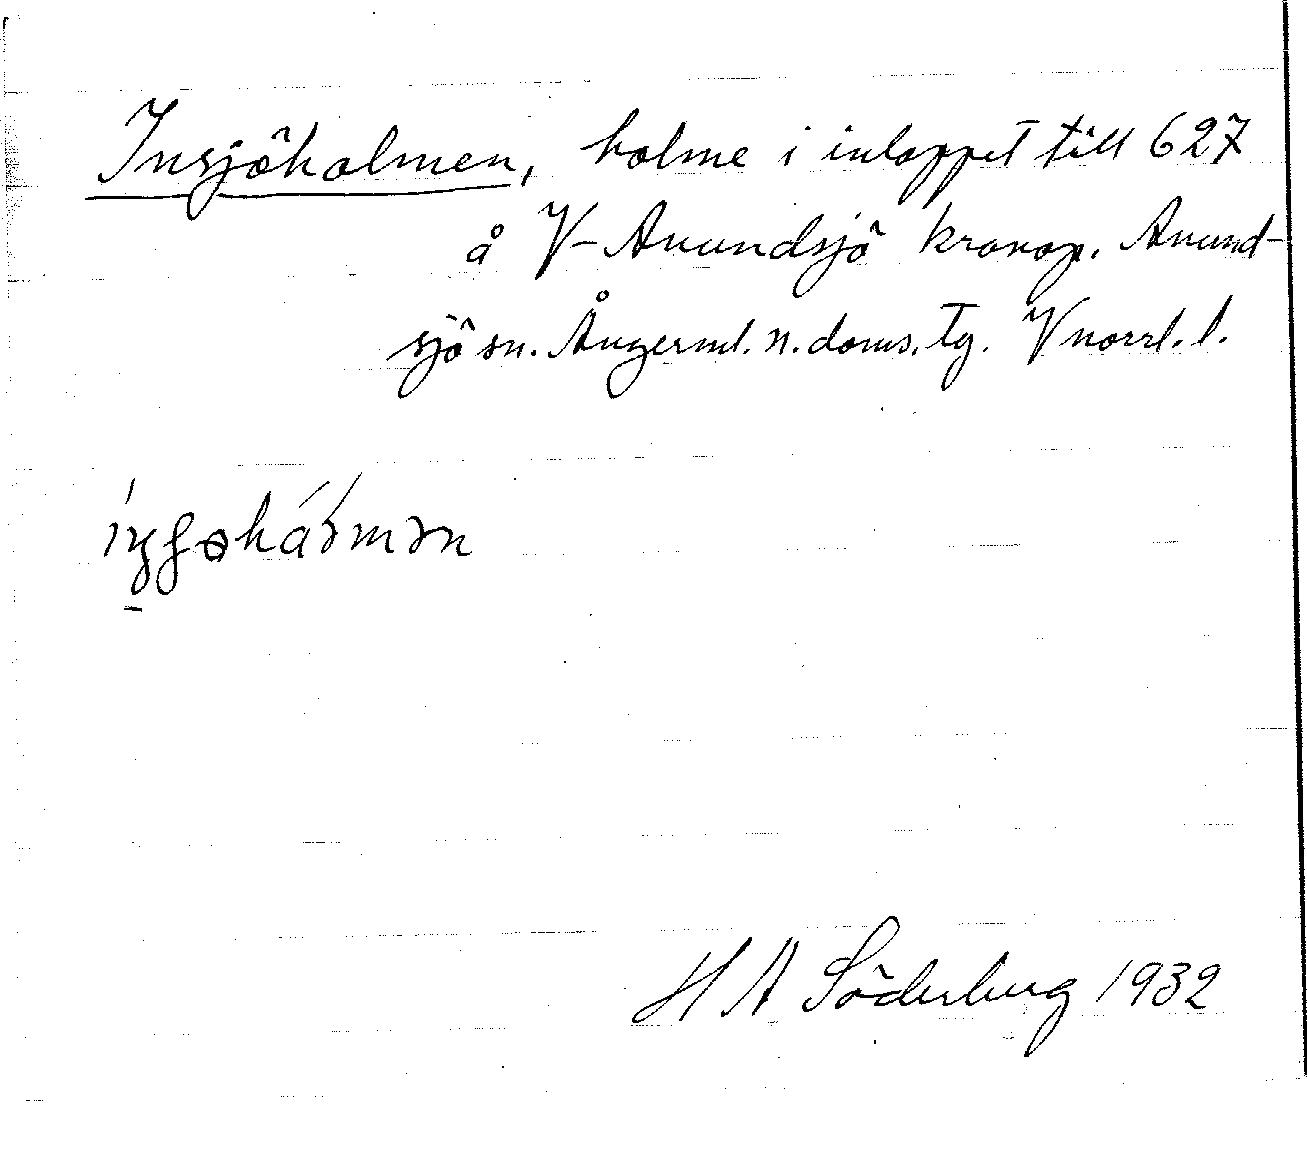 Insjöholmen, holme i inloppet till 627
å V-Anundsjö kronop. Anund-
sjö sn. Ångerml. n. doms. Tg. Vnorrl. l.
H A Söderberg 1932